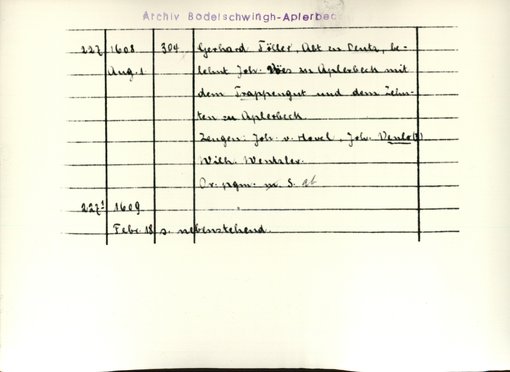 Archiv Bodelschwingh-Aplerbeck
227 1608 304 Gerhard Töller, Abt zu Deutz, be-
Aug. 1 lehnt Joh. Voes zu Aplerbeck mit
dem Trappengut und dem Zehn-
ten zu Aplerbeck.
Zeugen: Joh. v. Havel, Joh. Venlo(?)
Wilh. Wentzler.
Or. pgm. m. S. ab
227¹ 1609
Febr. 18 s. nebenstehend.